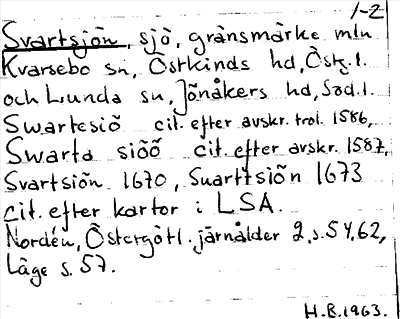 1-2
Svartsjön, sjö, gränsmärke mln
Kvarsebo sn, Östkinds hd, Östg. l.
och Lunda sn, Jönåkers hd, Söd. l.
Swartesiö cit. efter avskr. trol. 1586,
Swarta siöö cit. efter avskr. 1587,
Svartsiön 1670, Suarttsiön 1673
cit. efter kartor i LSA.
Nordén, Östergötl. järnålder 2, s. 54, 62,
Läge s. 57.
H.B. 1963.